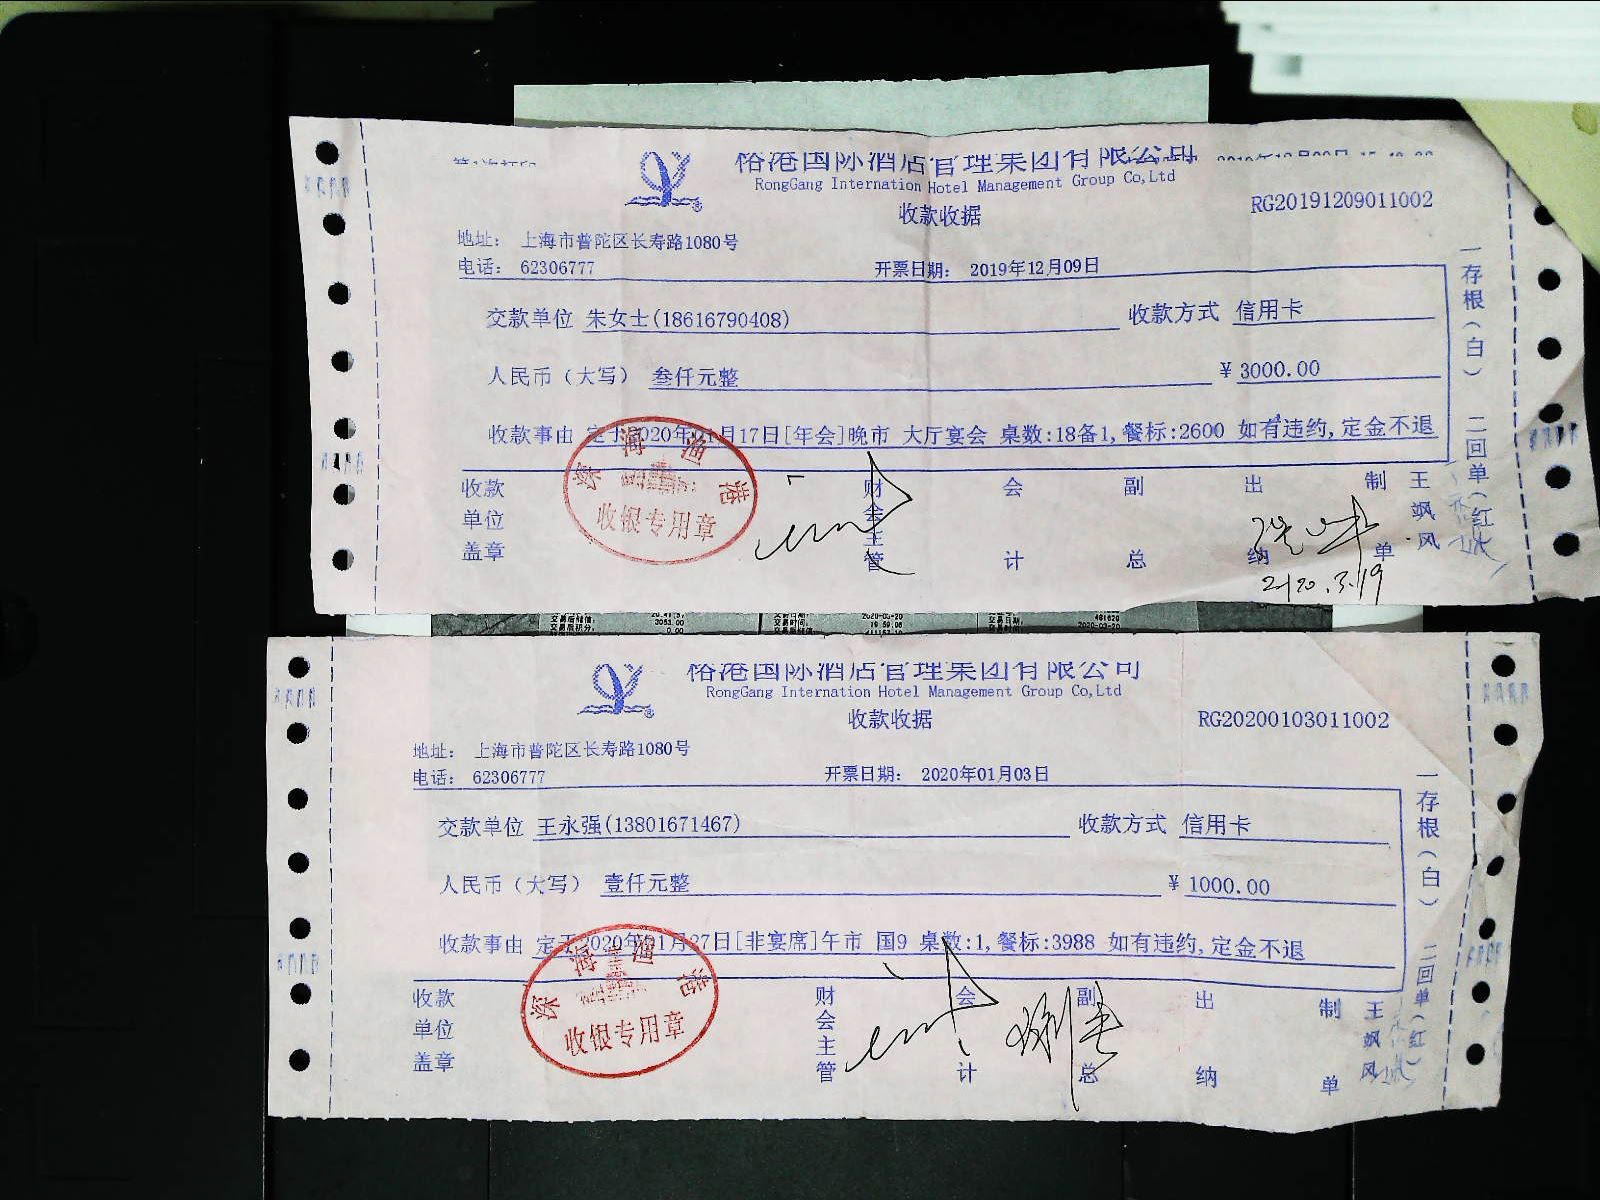 裕港国际酒店管理集团有限公司
RongGang Internation Hotel Management Group Co,Ltd
收款收据
RG20191209011002
地址： 上海市普陀区长寿路1080号
电话： 62306777
开票日期： 2019年12月09日
交款单位 朱女士(18616790408)
收款方式 信用卡
人民币（大写） 叁仟元整
¥ 3000.00
收款事由 定于2020年01月17日[年会]晚市 大厅宴会 桌数:18备1,餐标:2600 如有违约,定金不退
收款单位盖章
财会主管
会计
副总
出纳
制单
王飒风
一存根（白） 二回单（红）
深海渔港
收银专用章
2020.3.19
裕港国际酒店管理集团有限公司
RongGang Internation Hotel Management Group Co,Ltd
收款收据
RG20200103011002
地址： 上海市普陀区长寿路1080号
电话： 62306777
开票日期： 2020年01月03日
交款单位 王永强(13801671467)
收款方式 信用卡
人民币（大写） 壹仟元整
¥ 1000.00
收款事由 定于2020年01月27日[非宴席]午市 国9 桌数:1,餐标:3988 如有违约,定金不退
收款单位盖章
财会主管
会计
副总
出纳
制单
王飒风
一存根（白） 二回单（红）
深海渔港
收银专用章